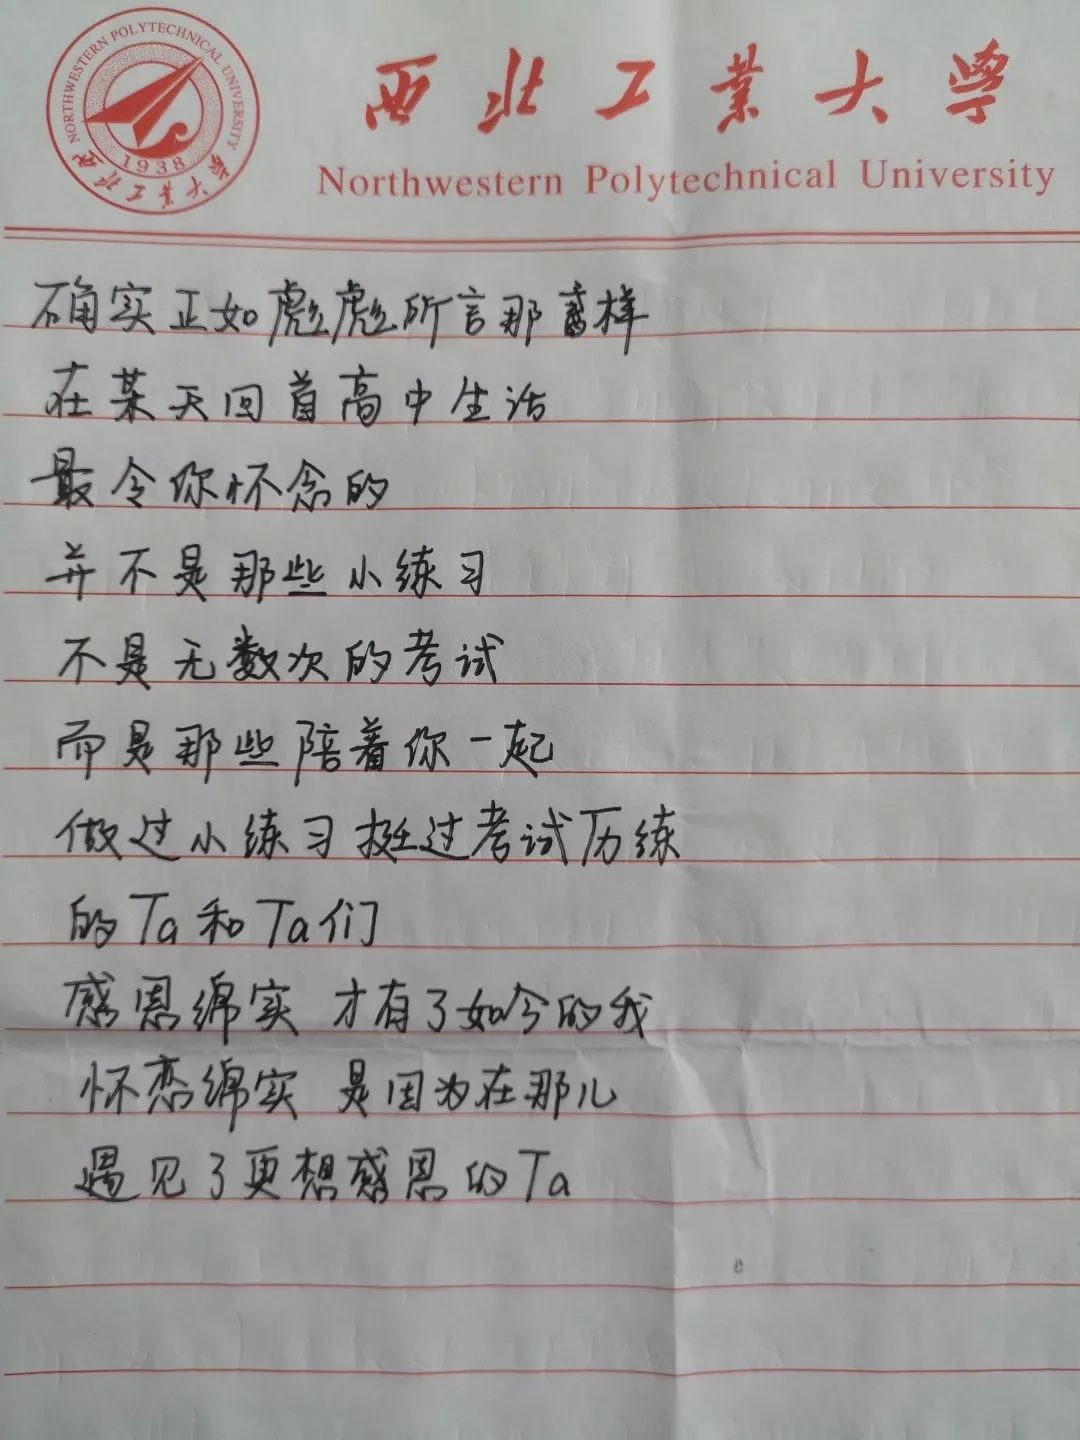 NORTHWESTERN POLYTECHNICAL UNIVERSITY
1938
西北工业大学
西北工业大学
Northwestern Polytechnical University
确实正如彪彪所言那样
在某天回首高中生活
最令你怀念的
并不是那些小练习
不是无数次的考试
而是那些陪着你一起
做过小练习挺过考试历练
的Ta和Ta们
感恩绵实 才有了如今的我
怀恋绵实 是因为在那儿
遇见了更想感恩的Ta